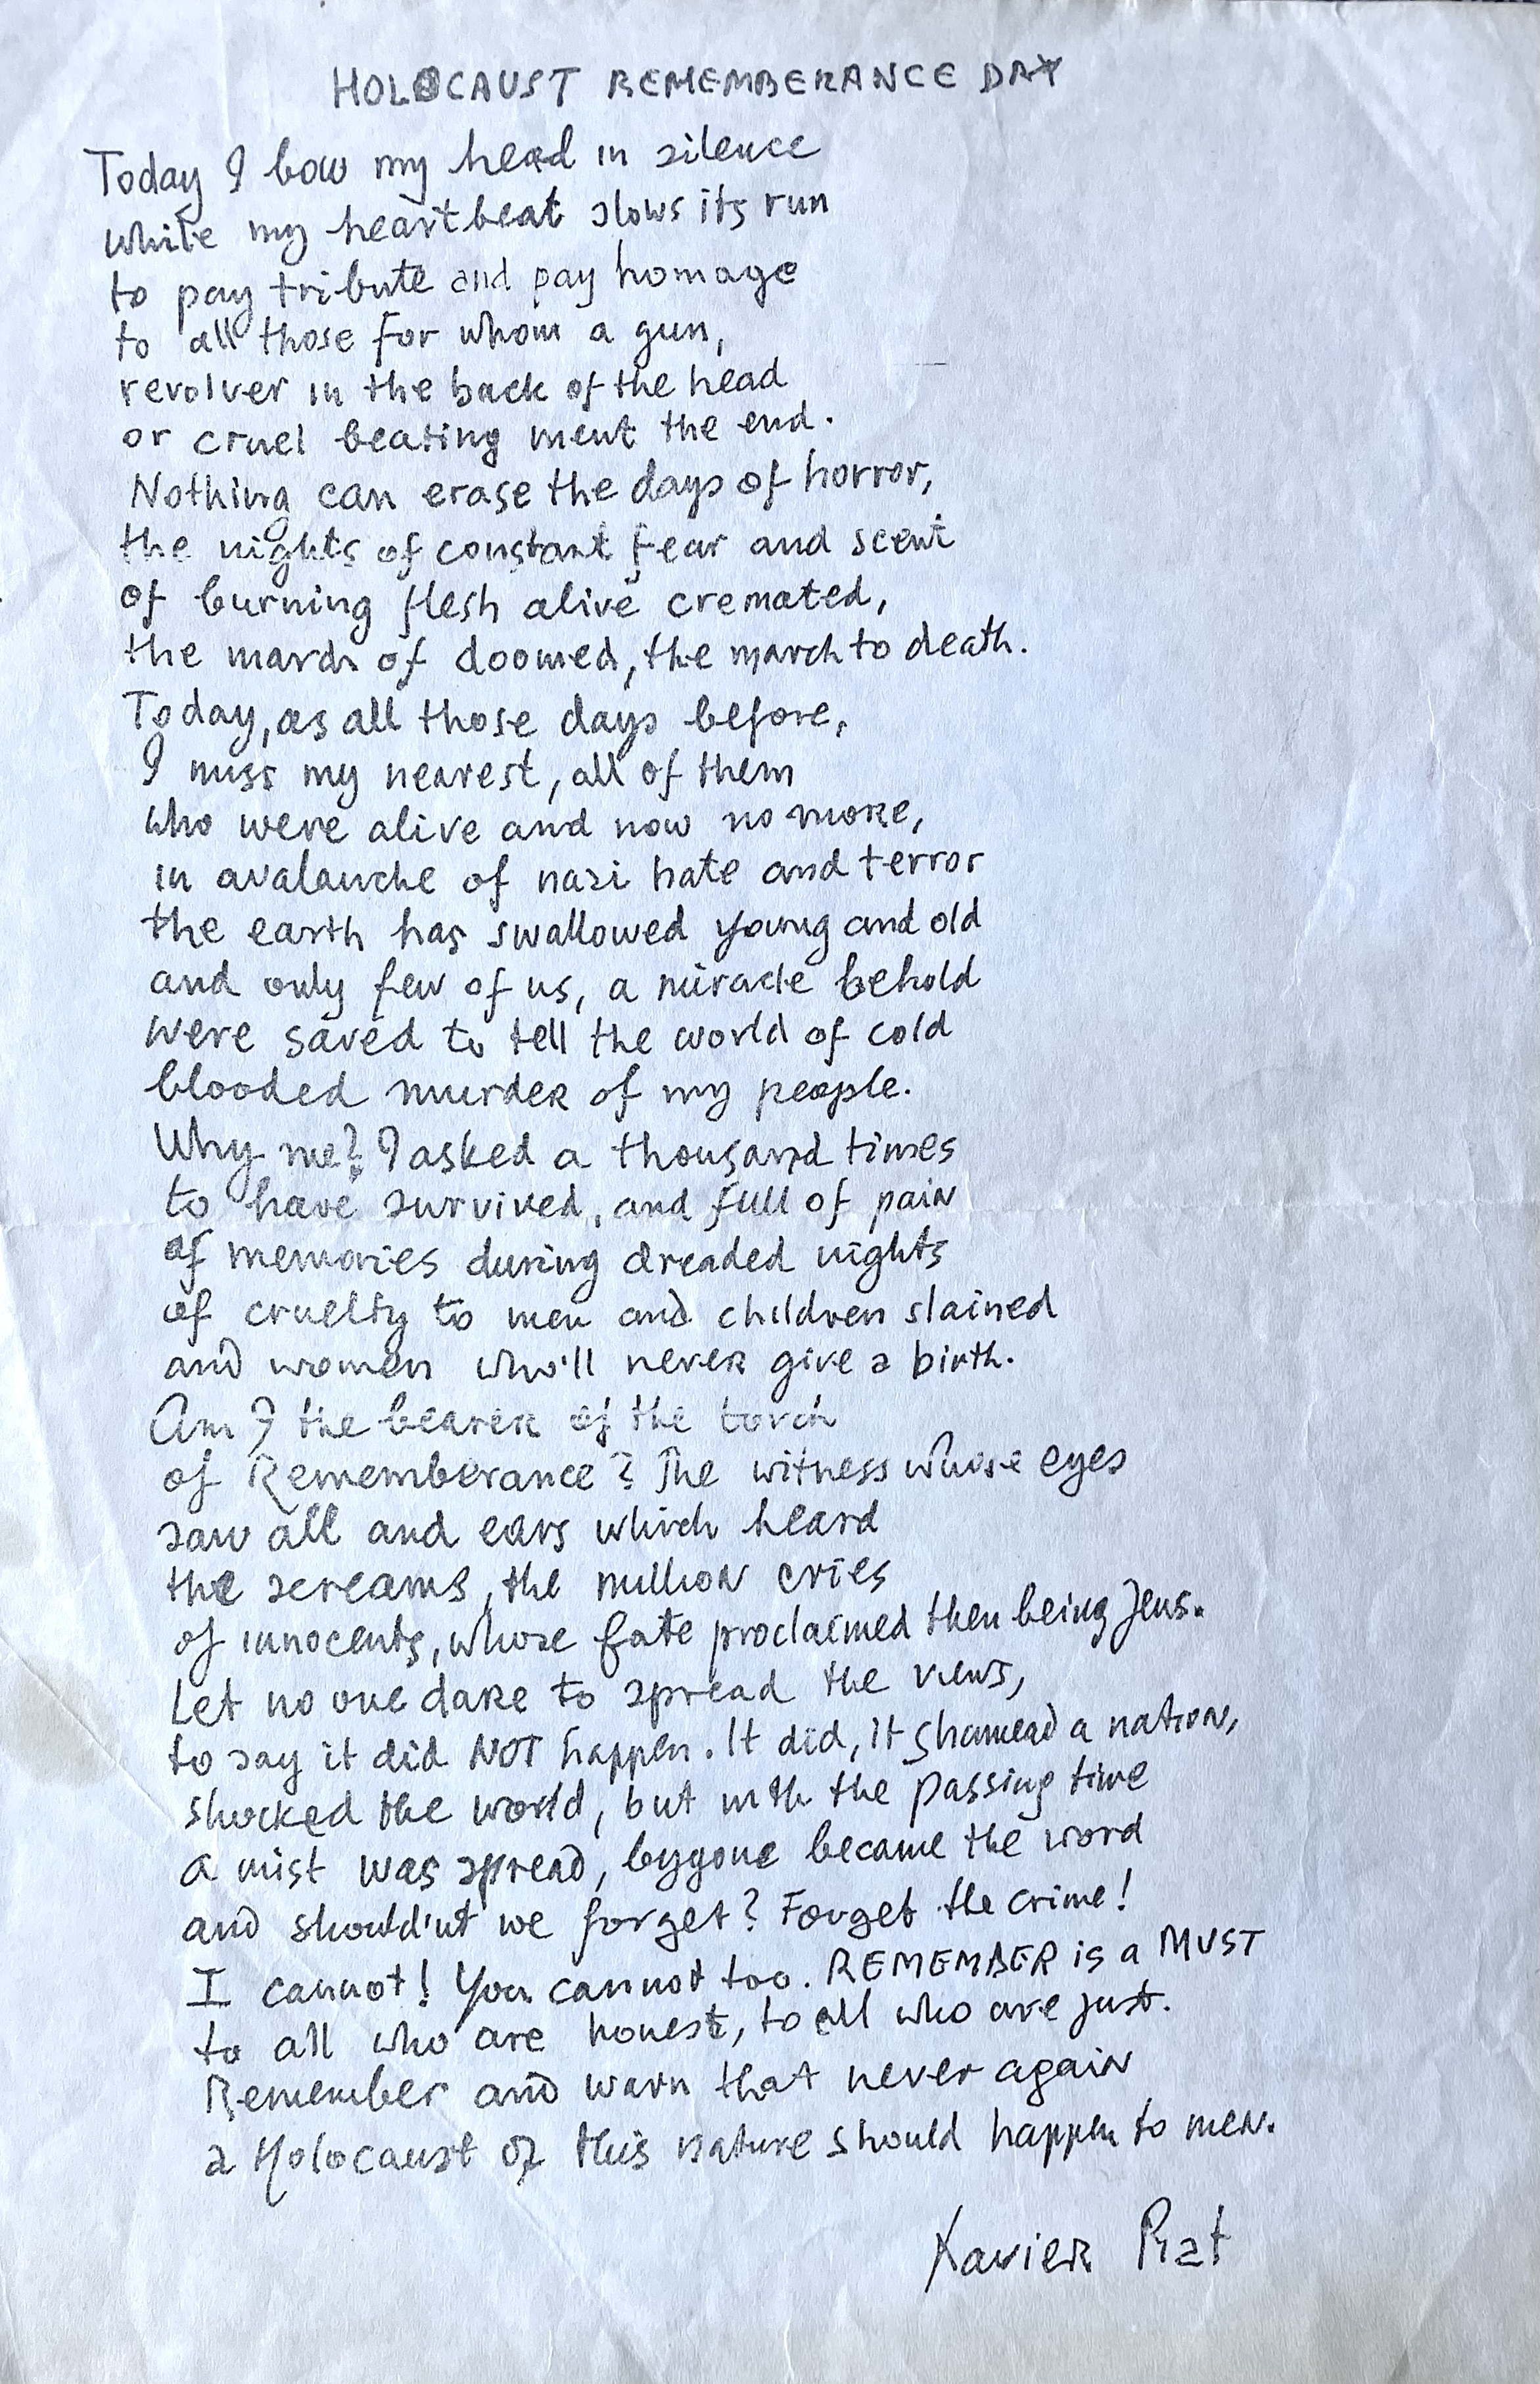 HOLOCAUST REMEMBERANCE DAY
Today I bow my head in silence
while my heartbeat slows its run
to pay tribute and pay homage
to all those for whom a gun,
revolver in the back of the head
or cruel beating ment the end.
Nothing can erase the days of horror,
the nights of constant fear and scent
of burning flesh alive cremated,
the march of doomed, the march to death.
Today, as all those days before,
I miss my nearest, all of them
who were alive and now no more,
in avalanche of nazi hate and terror
the earth has swallowed young and old
and only few of us, a miracle behold
were saved to tell the world of cold
blooded murder of my people.
Why me? I asked a thousand times
to have survived, and full of pain
of memories during dreaded nights
of cruelty to men and children slained
and women who'll never give a birth.
Am I the bearer of the torch
of Rememberance? The witness whose eyes
saw all and ears which heard
the screams, the million cries
of innocents, whose fate proclaimed then being Jews.
Let no one dare to spread the views,
to say it did NOT happen. It did, it shamead a nation,
shocked the world, but with the passing time
a mist was spread, bygone became the word
and should'nt we forget? Forget the crime!
I cannot! You cannot too. REMEMBER is a MUST
to all who are honest, to all who are just.
Remember and warn that never again
a Holocaust of this nature should happen to men.
Xavier